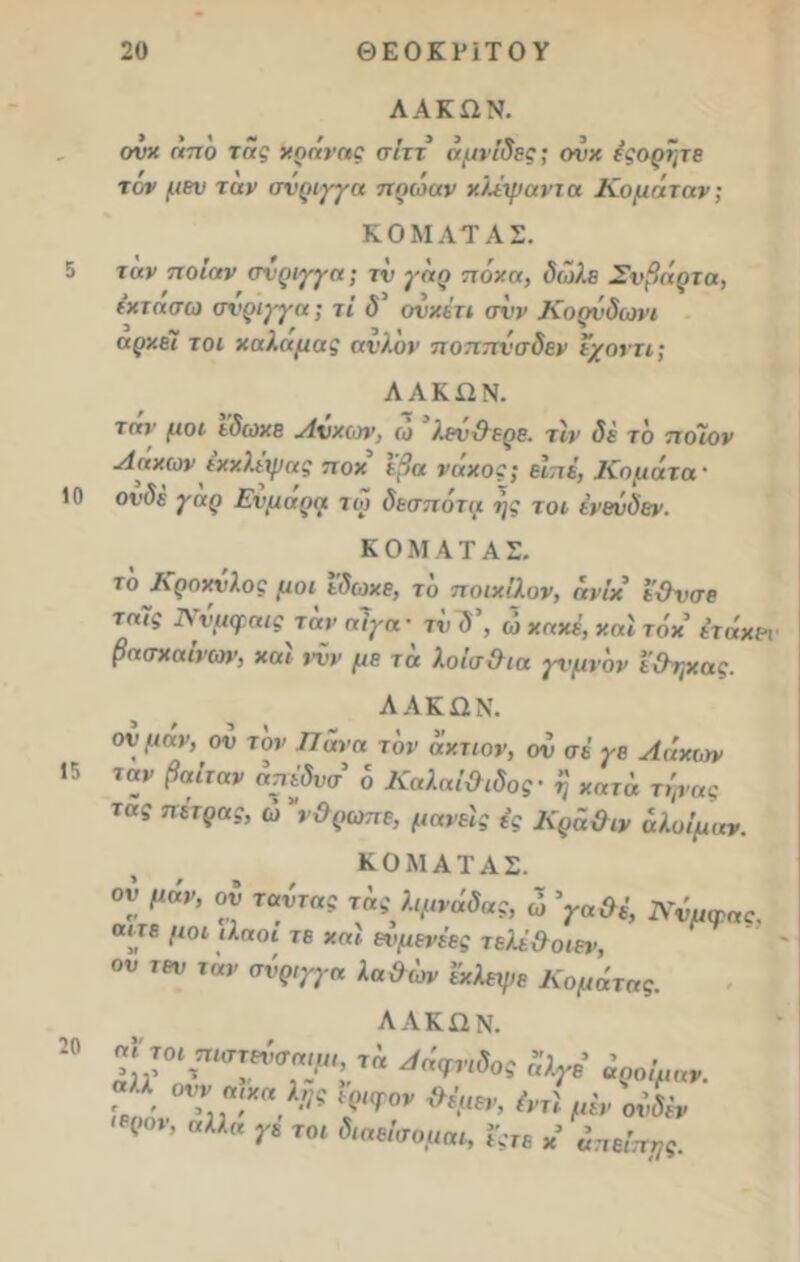 20 ΘΕΟΚΡΙΤΟΥ
ΛΑΚΩΝ.
οὐκ ἀπὸ τᾶς κράνας σίττ᾽ ἀμνίδες; οὐκ ἐςορῆτε
τόν μευ τὰν σύριγγα πρώαν κλέψαντα Κομάταν;
ΚΟΜΑΤΑΣ.
5 τὰν ποίαν σύριγγα; τὺ γάρ πόκα, δῶλε Συβάρτα,
ἐκτάσω σύριγγα; τί δ᾽ οὐκέτι σὺν Κορύδωνι
ἀρκεῖ τοι καλάμας αὐλὸν ποππύσδεν ἔχοντι;
ΛΑΚΩΝ.
τάν μοι ἔδωκε Λύκων, ὦ ᾽λεύθερε. τὶν δὲ τὸ ποῖον
Λάκων ἐκκλέψας ποκ᾽ ἔβα νάκος; εἰπέ, Κομάτα·
10 οὐδὲ γὰρ Εὐμάρᾳ τῷ δεσπότᾳ ἦς τοι ἐνεύδεν.
ΚΟΜΑΤΑΣ.
τὸ Κροκύλος μοι ἔδωκε, τὸ ποικίλον, ἁνίκ᾽ ἔθυσε
ταῖς Νύμφαις τὰν αἶγα· τὺ δ᾽, ὦ κακέ, καὶ τόκ᾽ ἐτάκευ
βασκαίνων, καὶ νῦν με τὰ λοίσθια γυμνὸν ἔθηκας.
ΛΑΚΩΝ.
οὐ μάν, οὐ τὸν Πᾶνα τὸν ἄκτιον, οὐ σέ γε Λάκων
15 τὰν βαίταν ἀπέδυσ᾽ ὁ Καλαίθιδος· ἢ κατὰ τήνας
τᾶς πέτρας, ὦ ᾽νθρωπε, μανεὶς ἐς Κρᾶθιν ἁλοίμαν.
ΚΟΜΑΤΑΣ.
οὐ μάν, οὐ ταύτας τὰς λιμνάδας, ὦ ᾽γαθέ, Νύμφας,
αἵτε μοι ἵλαοί τε καὶ εὐμενέες τελέθοιεν,
οὔ τευ τὰν σύριγγα λαθὼν ἔκλεψε Κομάτας.
ΛΑΚΩΝ.
20 αἴ τοι πιστεύσαιμι, τὰ Δάφνιδος ἄλγε᾽ ἀροίμαν.
ἀλλ᾽ οὖν αἴκα λῇς ἔριφον θέμεν, ἐντὶ μὲν οὐδὲν
ἱερόν, ἀλλά γέ τοι διαείσομαι, ἔςτε κ᾽ ἀπείπῃς.